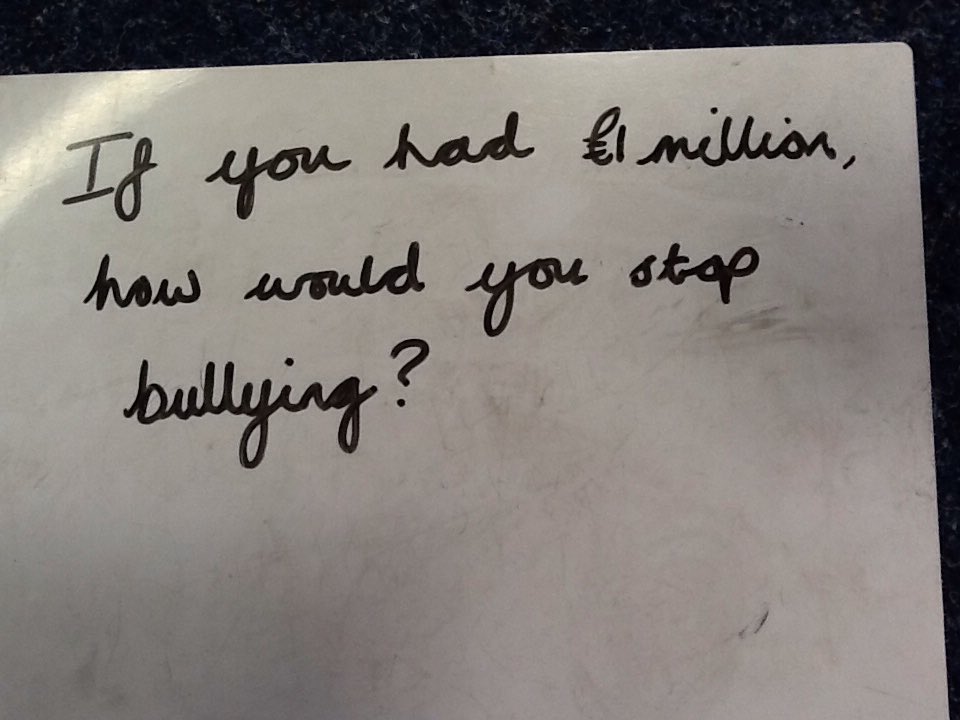 If you had £1 million,
how would you stop
bullying?